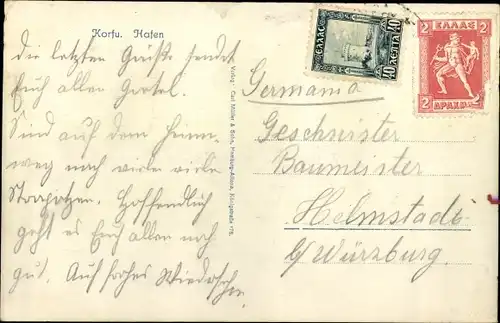 Korfu. Hafen
die letzten Grüße sendet
Euch allen Gretel.
Sind auf dem Heim-
weg nach viele viele
Strapatzen. Hoffendlich
geht es Euch allen noch
gut. Auf frohes Wiedersehen.
Verlag: Carl Müller & Sohn, Hamburg-Altona, Königstraße 178.
Germania
Geschwister
Baumeister
Helmstadt
b/ Würzburg.
ΕΛΛΑΣ
40 ΛΕΠΤΑ 40
ΕΛΛΑΣ
2 2
2 ΔΡΑΧΜ. 2